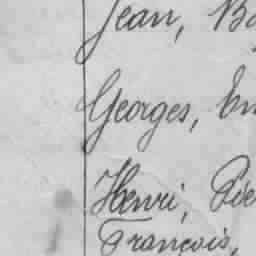 Jean,
Georges,
Henri,
François,